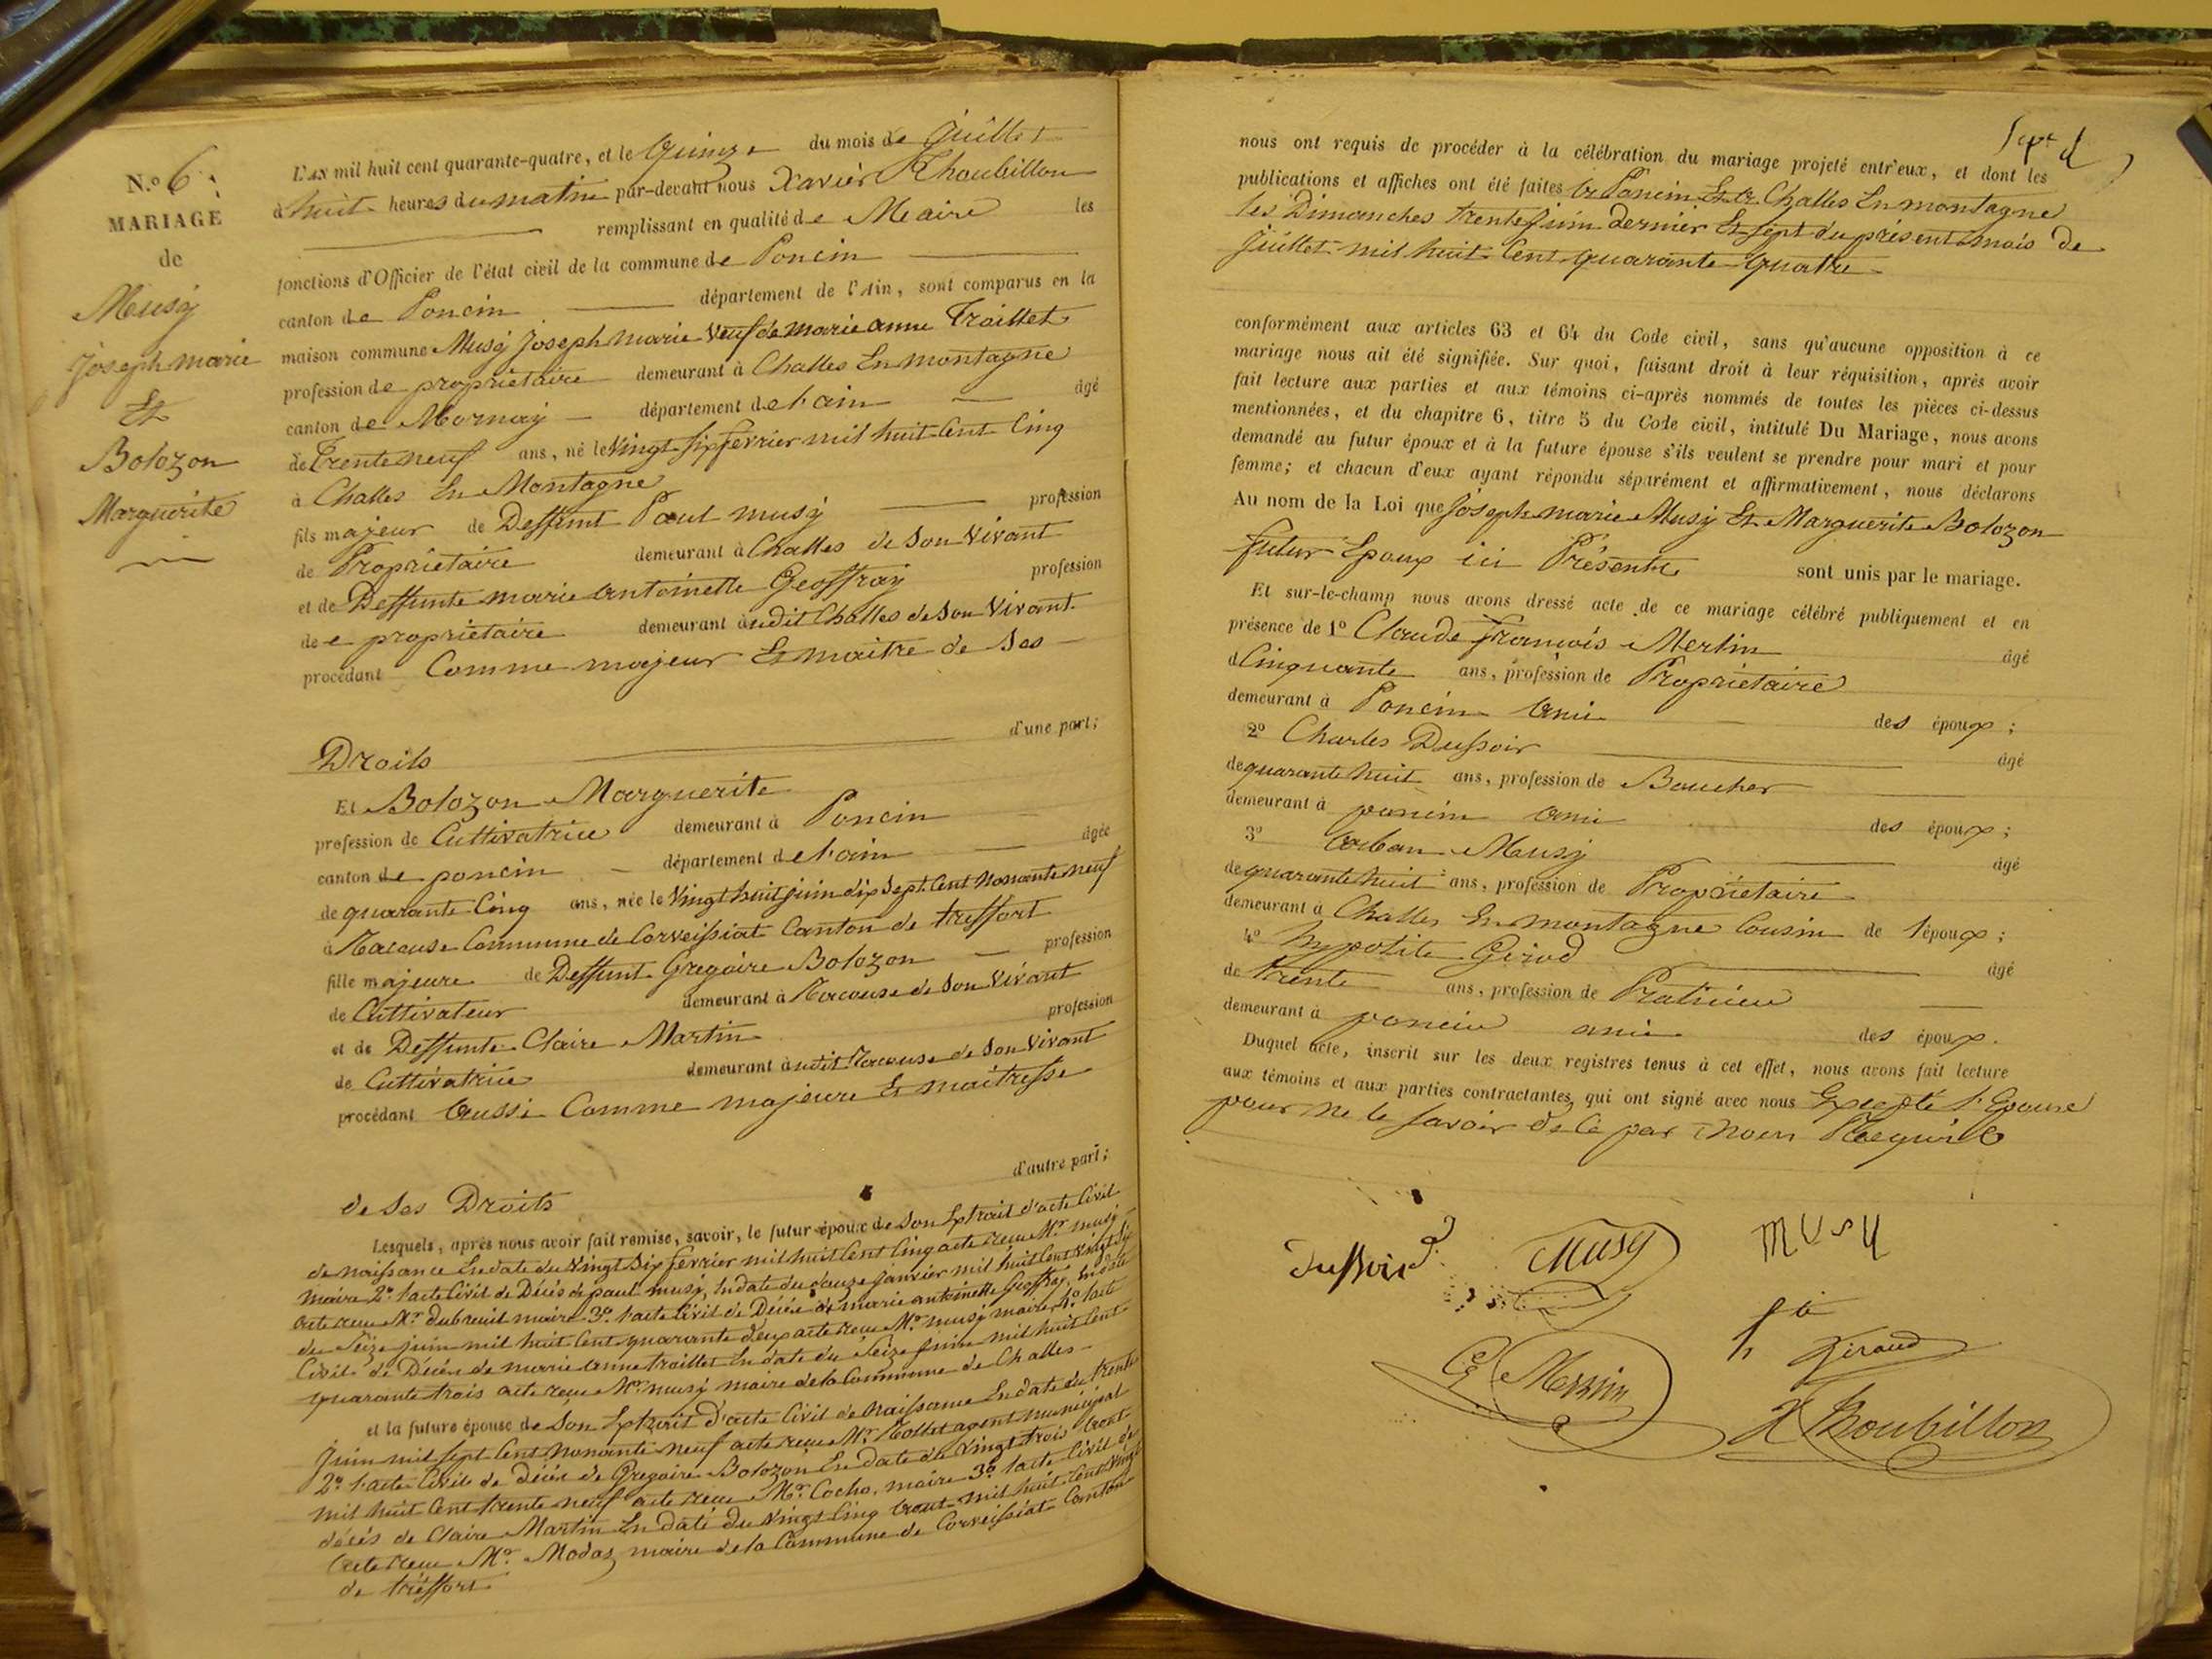 N.o 6
MARIAGE
de
Musy
Joseph marie
Et
Bolozon
Marguerite
L'AN mil huit cent quarante-quatre, et le quinze du mois de Juillet
à huit heures du matin par-devant nous Xavier Thoubillon
remplissant en qualité de Maire les
fonctions d'Officier de l'état civil de la commune de Poncin
canton de Poncin département de l'Ain, sont comparus en la
maison commune Musy Joseph marie Veuf de marie anne Traillet
profession de propriétaire demeurant à Challes En montagne
canton de Mornay département de l'ain âgé
de Trente neuf ans, né le Vingt Six fevrier mil huit Cent Cinq
à Challes En Montagne
fils majeur de Deffunt Paul musy profession
de Propriétaire demeurant à Challes de Son Vivant
et de Deffunte marie antoinette Geoffray profession
de e propriétaire demeurant à udit Challes de Son Vivant
procédant Comme majeur Et maitre de Ses
d'une part;
Droits
Et Bolozon Marguerite
profession de Cultivatrice demeurant à Poncin
canton de poncin département de l'ain âgée
de quarante Cinq ans, née le Vingt huit juin dix Sept Cent Nonante neuf
à Racouse Commune de Corveissiat Canton de treffort
fille majeure de Deffunt Gregoire Bolozon profession
de Cultivateur demeurant à Racouse de Son Vivant
et de Deffunte Claire Martin profession
de Cultivatrice demeurant à udit Racouse de Son Vivant
procédant aussi Comme majeure Et maitresse
d'autre part;
de Ses Droits
Lesquels, après nous avoir fait remise, savoir, le futur époux de Son Extrait d'acte Civil
de naissance En date du Vingt Six fevrier mil huit Cent Cinq acte reçu Mr musy
maire 2o l'acte Civil de Décès de paul musy, En date du douze janvier mil huit Cent Vingt Six
acte reçu Mr dubreuil maire 3o l'acte Civil de Décès de marie antoinette Geoffray, En date
du Seize juin mil huit Cent quarante deux acte reçu Mr musy maire 4o l'acte
Civil de Décès de marie anne traillet En date du Seize juin mil huit Cent
quarante trois acte reçu Mr musy maire de la Commune de Challes
et la future épouse de Son Extrait d'acte Civil de Naissance En date du trente
juin mil sept Cent Nonante neuf acte reçu Mr Rollet agent municipal
2o l'acte Civil de Décès de Gregoire Bolozon En date du Vingt trois aout
mil huit Cent trente neuf acte reçu Mr Cocho, maire 3o l'acte Civil de
décès de Claire Martin En date du Vingt Cinq aout mil huit Cent Vingt
acte reçu Mr Modas maire de la Commune de Corveissiat Canton
de treffort
Sept
nous ont requis de procéder à la célébration du mariage projeté entr'eux, et dont les
publications et affiches ont été faites à Poncin Et à Challes En montagne
les Dimanches trente juin Dernier Et sept du présent mois de
juillet mil huit Cent quarante quatre
conformément aux articles 63 et 64 du Code civil, sans qu'aucune opposition à ce
mariage nous ait été signifiée. Sur quoi, faisant droit à leur réquisition, après avoir
fait lecture aux parties et aux témoins ci-après nommés de toutes les pièces ci-dessus
mentionnées, et du chapitre 6, titre 5 du Code civil, intitulé Du Mariage, nous avons
demandé au futur époux et à la future épouse s'ils veulent se prendre pour mari et pour
femme; et chacun d'eux ayant répondu séparément et affirmativement, nous déclarons
Au nom de la Loi que Joseph marie Musy Et Marguerite Bolozon
futur Epoux ici Présents sont unis par le mariage.
Et sur-le-champ nous avons dressé acte de ce mariage célébré publiquement et en
présence de 1o Claude François Merlin âgé
d Cinquante ans, profession de Propriétaire
demeurant à Poncin ami des époux;
2o Charles Dussoir âgé
de quarante huit ans, profession de Boucher
demeurant à poncin ami des époux;
3o Urban Musy âgé
de quarante huit ans, profession de Propriétaire
demeurant à Challes En montagne Cousin de l'époux;
4o hypolite Girod âgé
de trente ans, profession de Praticien
demeurant à poncin ami des époux.
Duquel acte, inscrit sur les deux registres tenus à cet effet, nous avons fait lecture
aux témoins et aux parties contractantes, qui ont signé avec nous Excepté l'Epouse
pour ne le Savoir de Ce par Nous Requise
Dussoir Musy MUSY
Giraud
Merlin
X Thoubillon